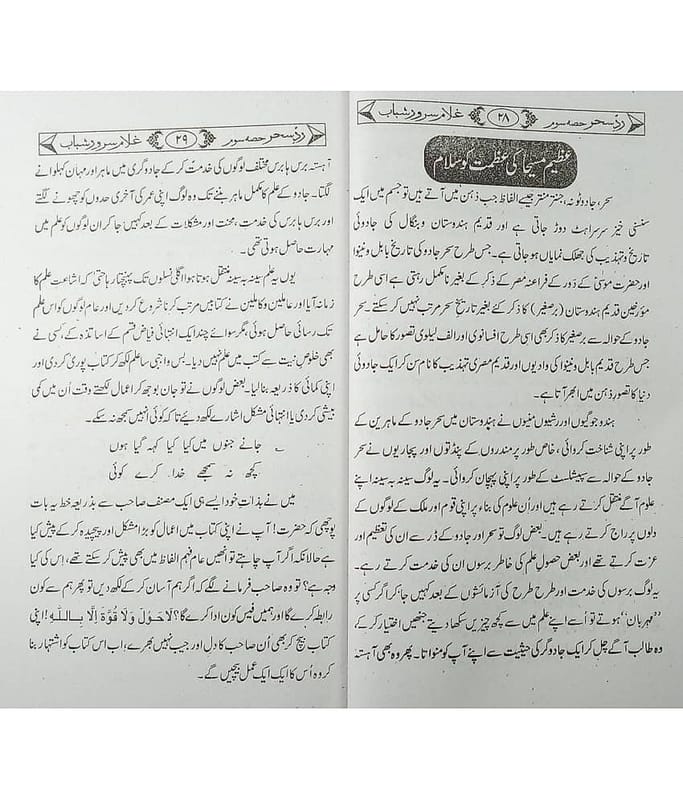 ردِّ سحر حصہ سوم ۲۸ غلام سرور شباب
عظیم مسیحا کی عظمت کو سلام
سحر، جادو ٹونہ، جنتر منتر جیسے الفاظ جب ذہن میں آتے ہیں تو جسم میں ایک
سنسنی خیز سرسراہٹ دوڑ جاتی ہے اور قدیم ہندوستان و بنگال کی جادوئی
تاریخ و تہذیب کی جھلک نمایاں ہو جاتی ہے۔ جس طرح سحر جادو کی تاریخ بابل و نینوا
اور حضرت موسیٰؑ کے دَور کے فراعنہ مصر کے ذکر کے بغیر نامکمل رہتی ہے اسی طرح
مؤرخین قدیم ہندوستان (برصغیر) کا ذکر کئے بغیر تاریخِ سحر مرتب نہیں کر سکتے۔ سحر
جادو کے حوالہ سے برصغیر کا ذکر بھی اسی طرح افسانوی اور الف لیلوی تصور کا حامل ہے
جس طرح قدیم بابل و نینوا کی وادیوں اور قدیم مصری تہذیب کا نام سن کر ایک جادوئی
دنیا کا تصور ذہن میں ابھر آتا ہے۔
ہندو جوگیوں اور رشیوں منیوں نے ہندوستان میں سحر جادو کے ماہرین کے
طور پر اپنی شناخت کروائی، خاص طور پر مندروں کے پنڈتوں اور پجاریوں نے سحر
جادو کے حوالہ سے سپیشلسٹ کے طور پر اپنی پہچان کروائی۔ یہ لوگ سینہ بہ سینہ اپنے
علوم آگے منتقل کرتے رہے ہیں اور اُن علوم کی بناء پر اپنی قوم اور ملک کے لوگوں کے
دلوں پر راج کرتے رہے ہیں۔ بعض لوگ تو سحر اور جادو کے ڈر سے ان کی تعظیم اور
عزت کرتے تھے اور بعض حصولِ علم کی خاطر برسوں ان کی خدمت کرتے رہے۔
یہ لوگ برسوں کی خدمت اور طرح طرح کی آزمائشوں کے بعد کہیں جا کر اگر کسی پر
”مہربان“ ہوتے تو اُسے اپنے علم میں سے کچھ چیزیں سکھا دیتے جنھیں اختیار کر کے،
وہ طالب آگے چل کر ایک جادوگر کی حیثیت سے اپنے آپ کو منواتا۔ پھر وہ بھی آہستہ
ردِّ سحر حصہ سوم ۲۹ غلام سرور شباب
آہستہ برس ہا برس مختلف لوگوں کی خدمت کر کے جادوگری میں ماہر اور مہان کہلوانے
لگتا۔ جادو کے علم کا مکمل ماہر بننے تک وہ لوگ اپنی عمر کی آخری حدوں کو چھونے لگتے
اور برس ہا برس کی خدمت، محنت اور مشکلات کے بعد کہیں جا کر ان لوگوں کو علم میں
مہارت حاصل ہوتی تھی۔
یوں یہ علم سینہ بہ سینہ منتقل ہوتا ہوا اگلی نسلوں تک پہنچتا رہا حتیٰ کہ اشاعت علم کا
زمانہ آیا اور عاملین و کاملین نے کتابیں مرتب کرنا شروع کر دیں اور عام لوگوں کو اس علم
تک رسائی حاصل ہوئی، مگر سوائے چند ایک انتہائی فیاض قسم کے اساتذہ کے، کسی نے
بھی خلوصِ نیت سے کتب میں علم نہیں دیا۔ بس واجبی سا علم لکھ کر کتاب پوری کر دی اور
اپنی کمائی کا ذریعہ بنا لیا۔ بعض لوگوں نے تو جان بوجھ کر اعمال لکھتے وقت اُن میں کمی
بیشی کر دی یا انتہائی مشکل اشارے لکھ دیئے تاکہ کوئی انہیں سمجھ نہ سکے۔
؎ جانے جنوں میں کیا کیا کہہ گیا ہوں
کچھ نہ سمجھے خدا کرے کوئی
میں نے بذاتِ خود ایسے ہی ایک مصنف صاحب سے بذریعہ خط یہ بات
پوچھی کہ حضرت! آپ نے اپنی کتاب میں اعمال کو بڑا مشکل اور پیچیدہ کر کے پیش کیا
ہے حالانکہ اگر آپ چاہتے تو انھیں عام فہم الفاظ میں بھی پیش کر سکتے تھے، اِس کی کیا
وجہ ہے؟ تو وہ صاحب فرمانے لگے کہ اگر ہم آسان کر کے لکھ دیں تو پھر ہم سے کون
رابطہ کرے گا اور ہمیں فیس کون ادا کرے گا؟ لَاحَوْلَ وَلَا قُوَّةَ اِلَّا بِاللّٰهِ! اپنی
کتاب بیچ کر بھی اُن صاحب کا دل اور جیب نہیں بھرے، اب اس کتاب کو اشتہار بنا
کر وہ اُس کا ایک ایک عمل بیچیں گے۔